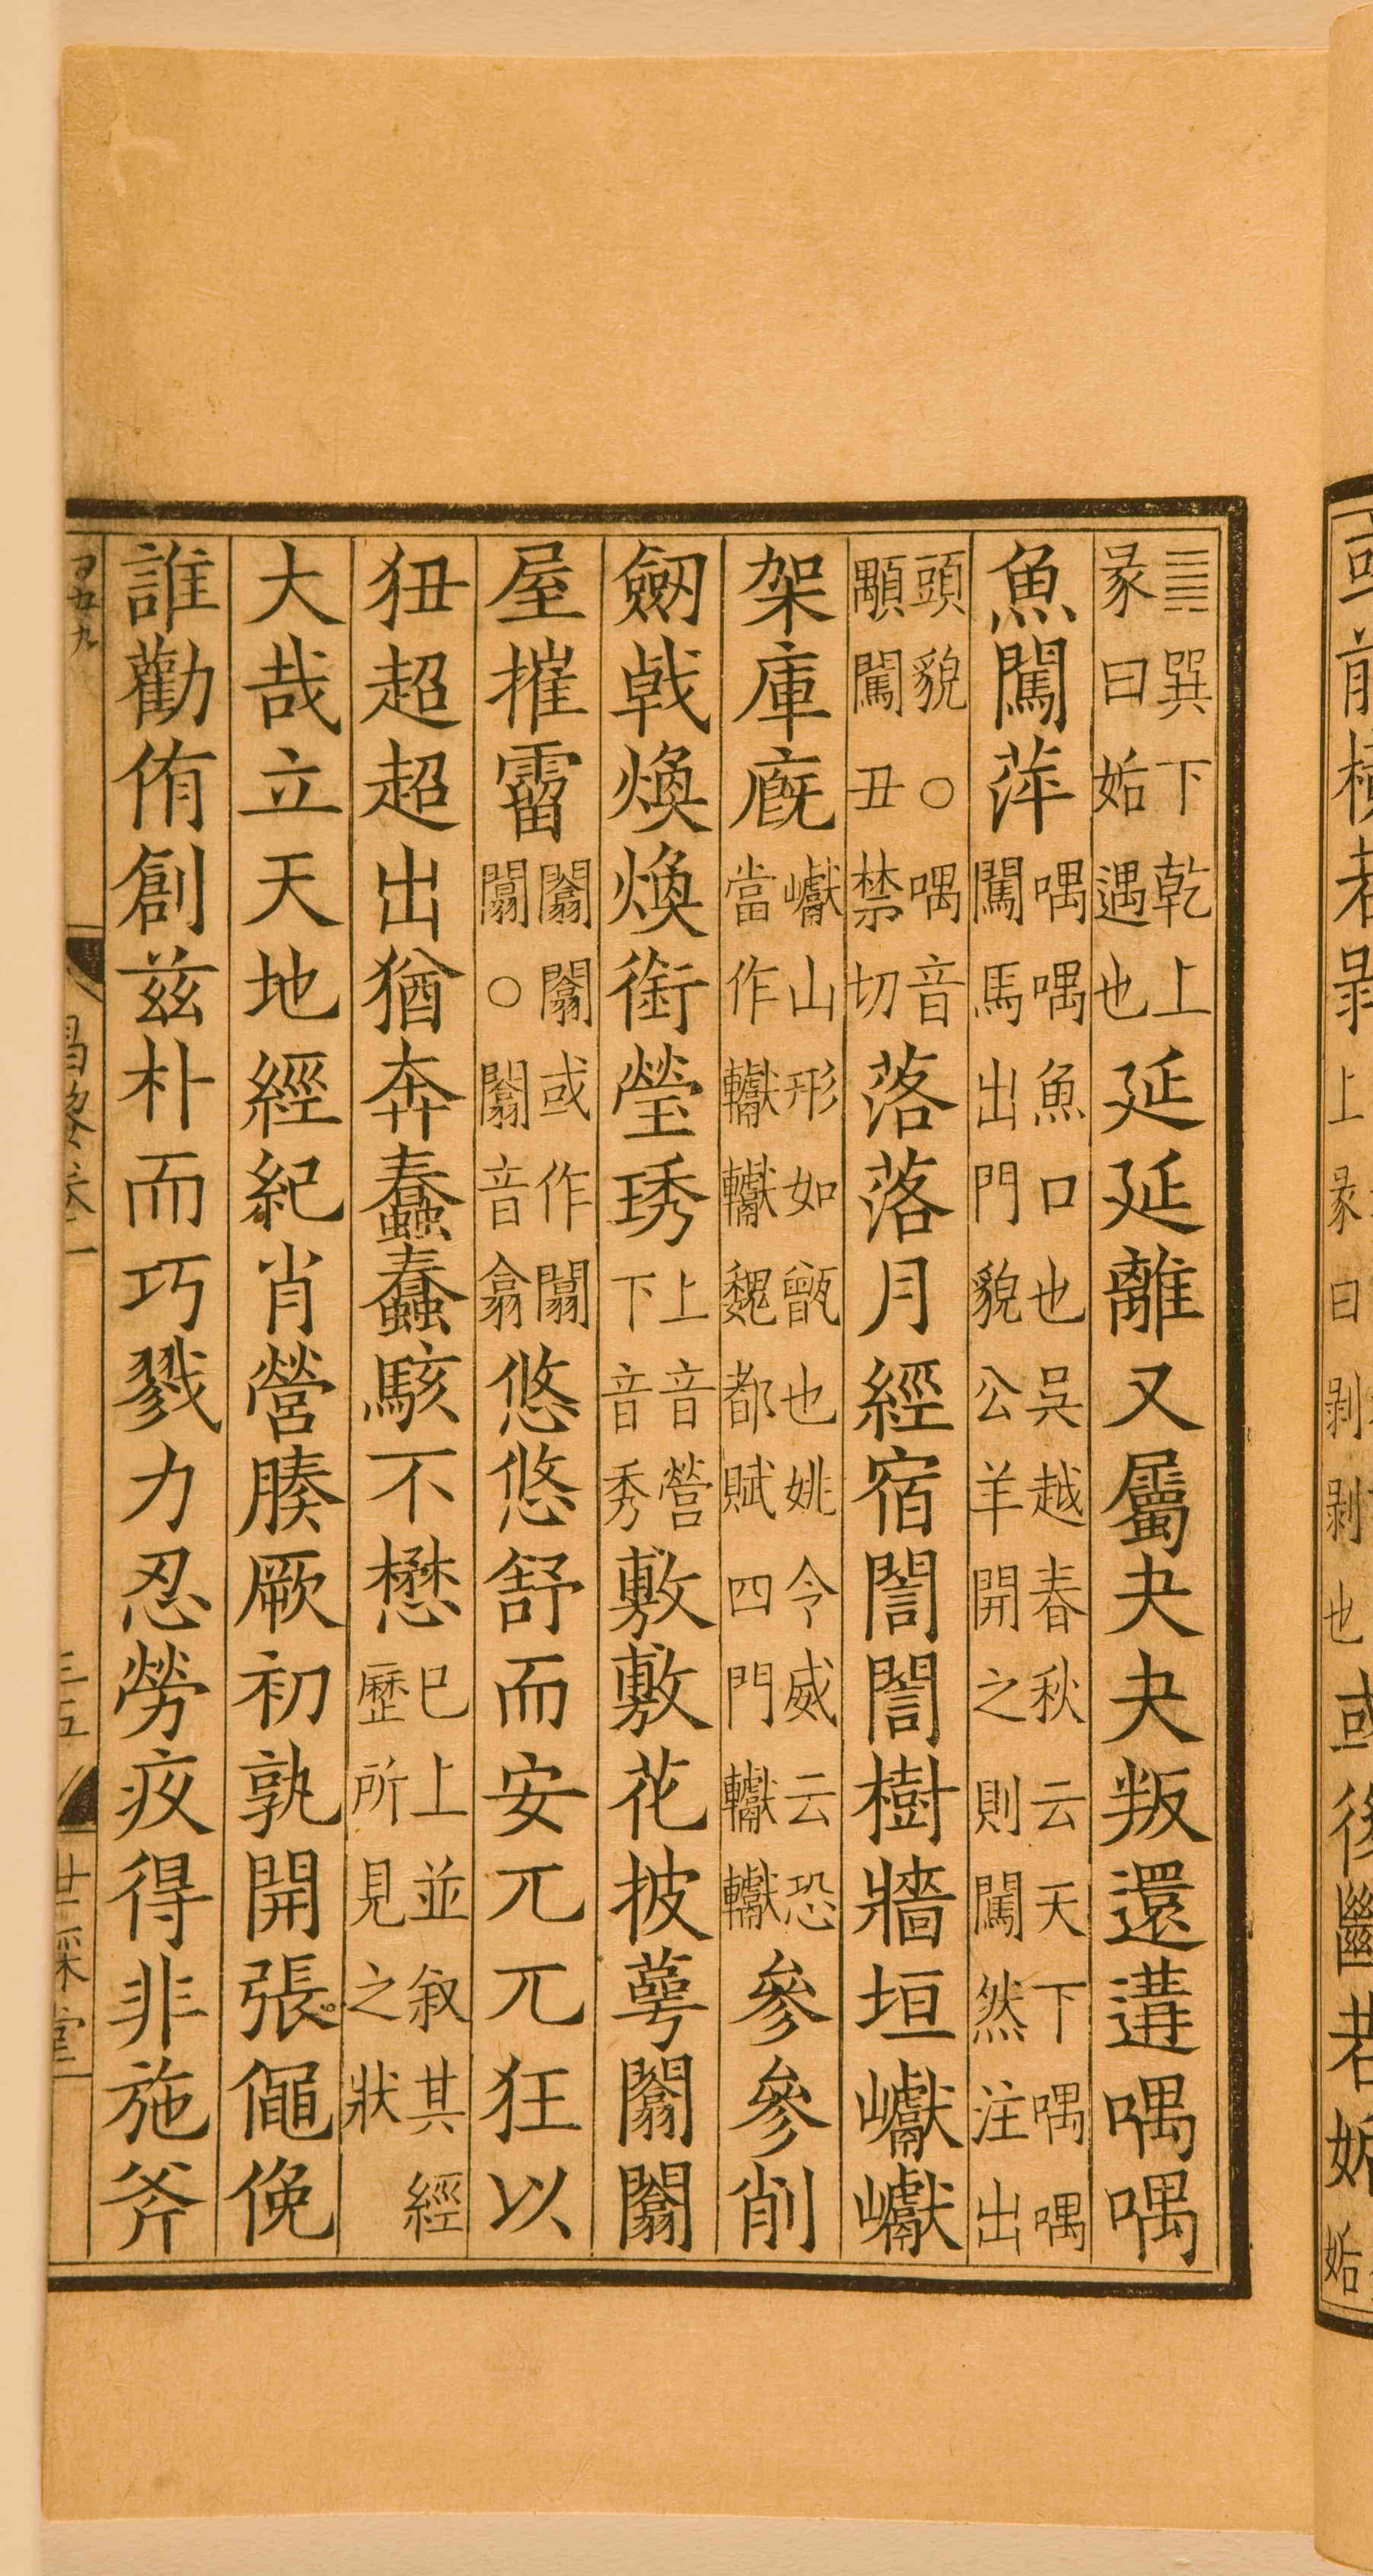 ䷫巽下乾上彖曰姤遇也延延離又屬夬夬叛還遘喁喁
魚闖萍喁喁魚口也吳越春秋云天下喁喁闖馬出門貌公羊開之則闖然注出
頭貌○喁音顒闖丑禁切落落月經宿誾誾樹牆垣巘巘
架庫廐巘山形如甑也姚令威云恐當作𨏩𨏩魏都賦四門𨏩𨏩參參削
劒戟煥煥銜瑩琇上音營下音秀敷敷花披萼闟闟
屋摧霤闟闟或作闟闟○闟音翕悠悠舒而安兀兀狂以
狃超超出猶奔蠢蠢駭不懋已上並敘其經歷所見之狀
大哉立天地經紀肖營腠厥初孰開張僶俛
誰勸侑創茲朴而巧戮力忍勞疚得非施斧